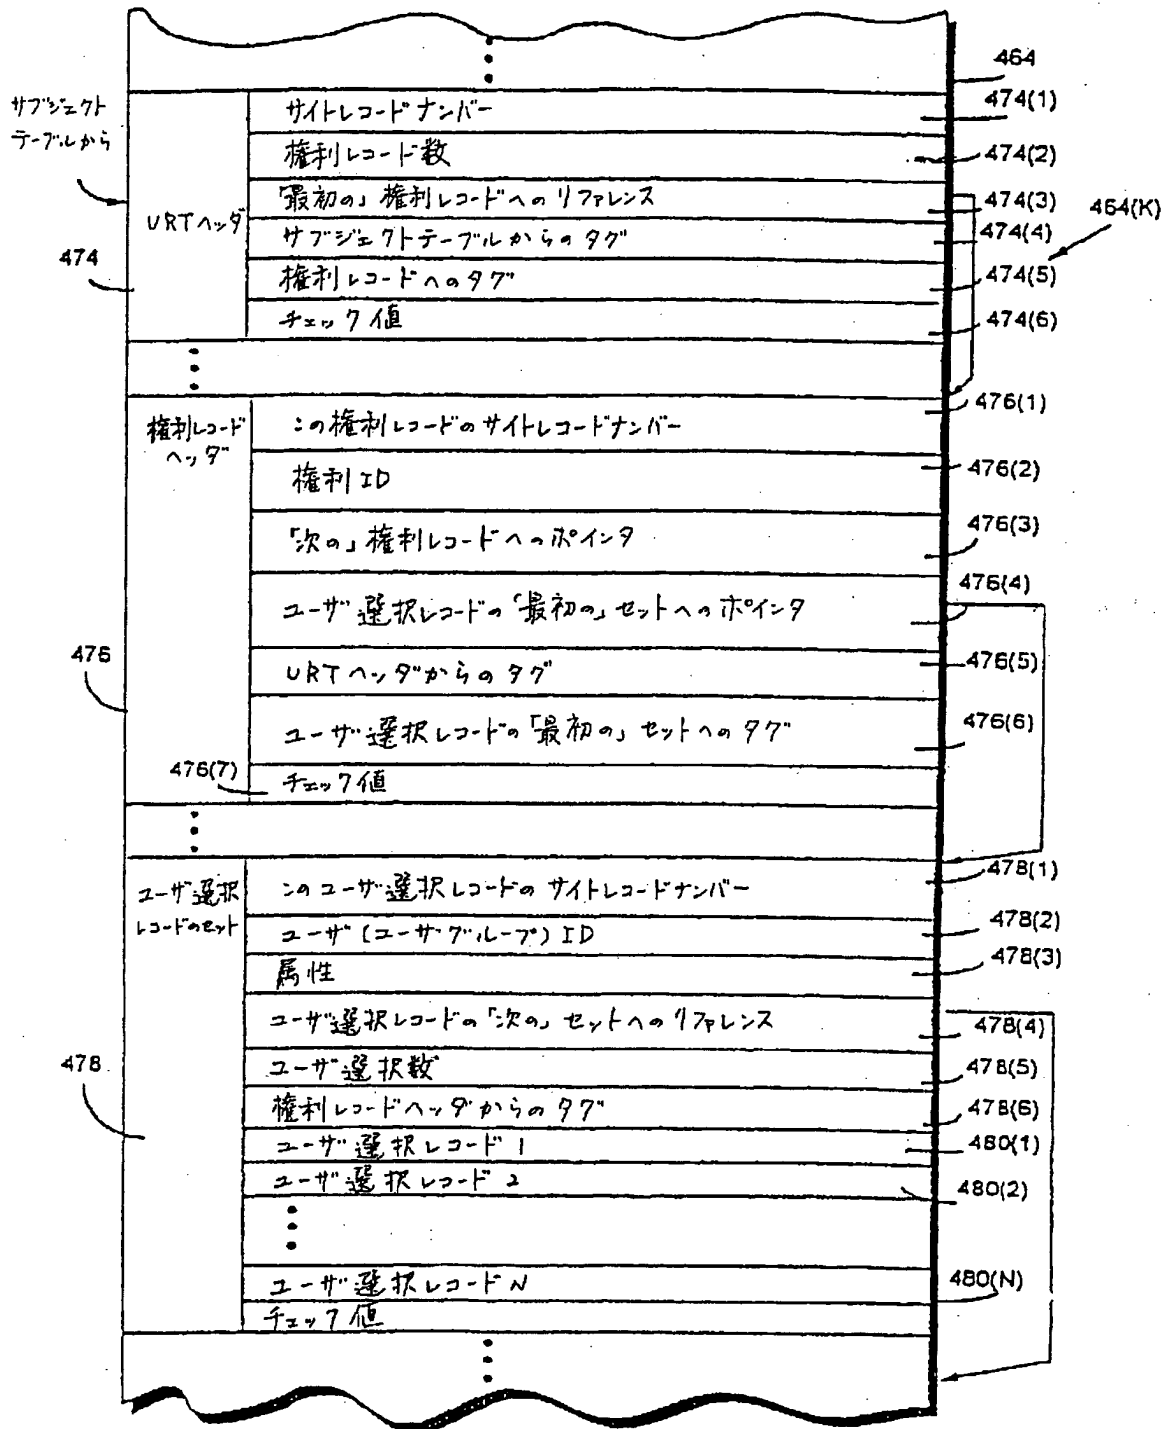 464
サブジェクト
テーブルから
URTヘッダ
474
サイトレコードナンバー
474(1)
権利レコード数
474(2)
「最初の」権利レコードへのリファレンス
474(3)
サブジェクトテーブルからのタグ
474(4)
464(K)
権利レコードへのタグ
474(5)
チェック値
474(6)
権利レコード
ヘッダ
476
この権利レコードのサイトレコードナンバー
476(1)
権利ID
476(2)
「次の」権利レコードへのポインタ
476(3)
ユーザ選択レコードの「最初の」セットへのポインタ
476(4)
URTヘッダからのタグ
476(5)
ユーザ選択レコードの「最初の」セットへのタグ
476(6)
476(7)
チェック値
ユーザ選択
レコードのセット
478
このユーザ選択レコードのサイトレコードナンバー
478(1)
ユーザ(ユーザグループ)ID
478(2)
属性
478(3)
ユーザ選択レコードの「次の」セットへのリファレンス
478(4)
ユーザ選択数
478(5)
権利レコードヘッダからのタグ
478(6)
ユーザ選択レコード1
480(1)
ユーザ選択レコード2
480(2)
ユーザ選択レコードN
480(N)
チェック値